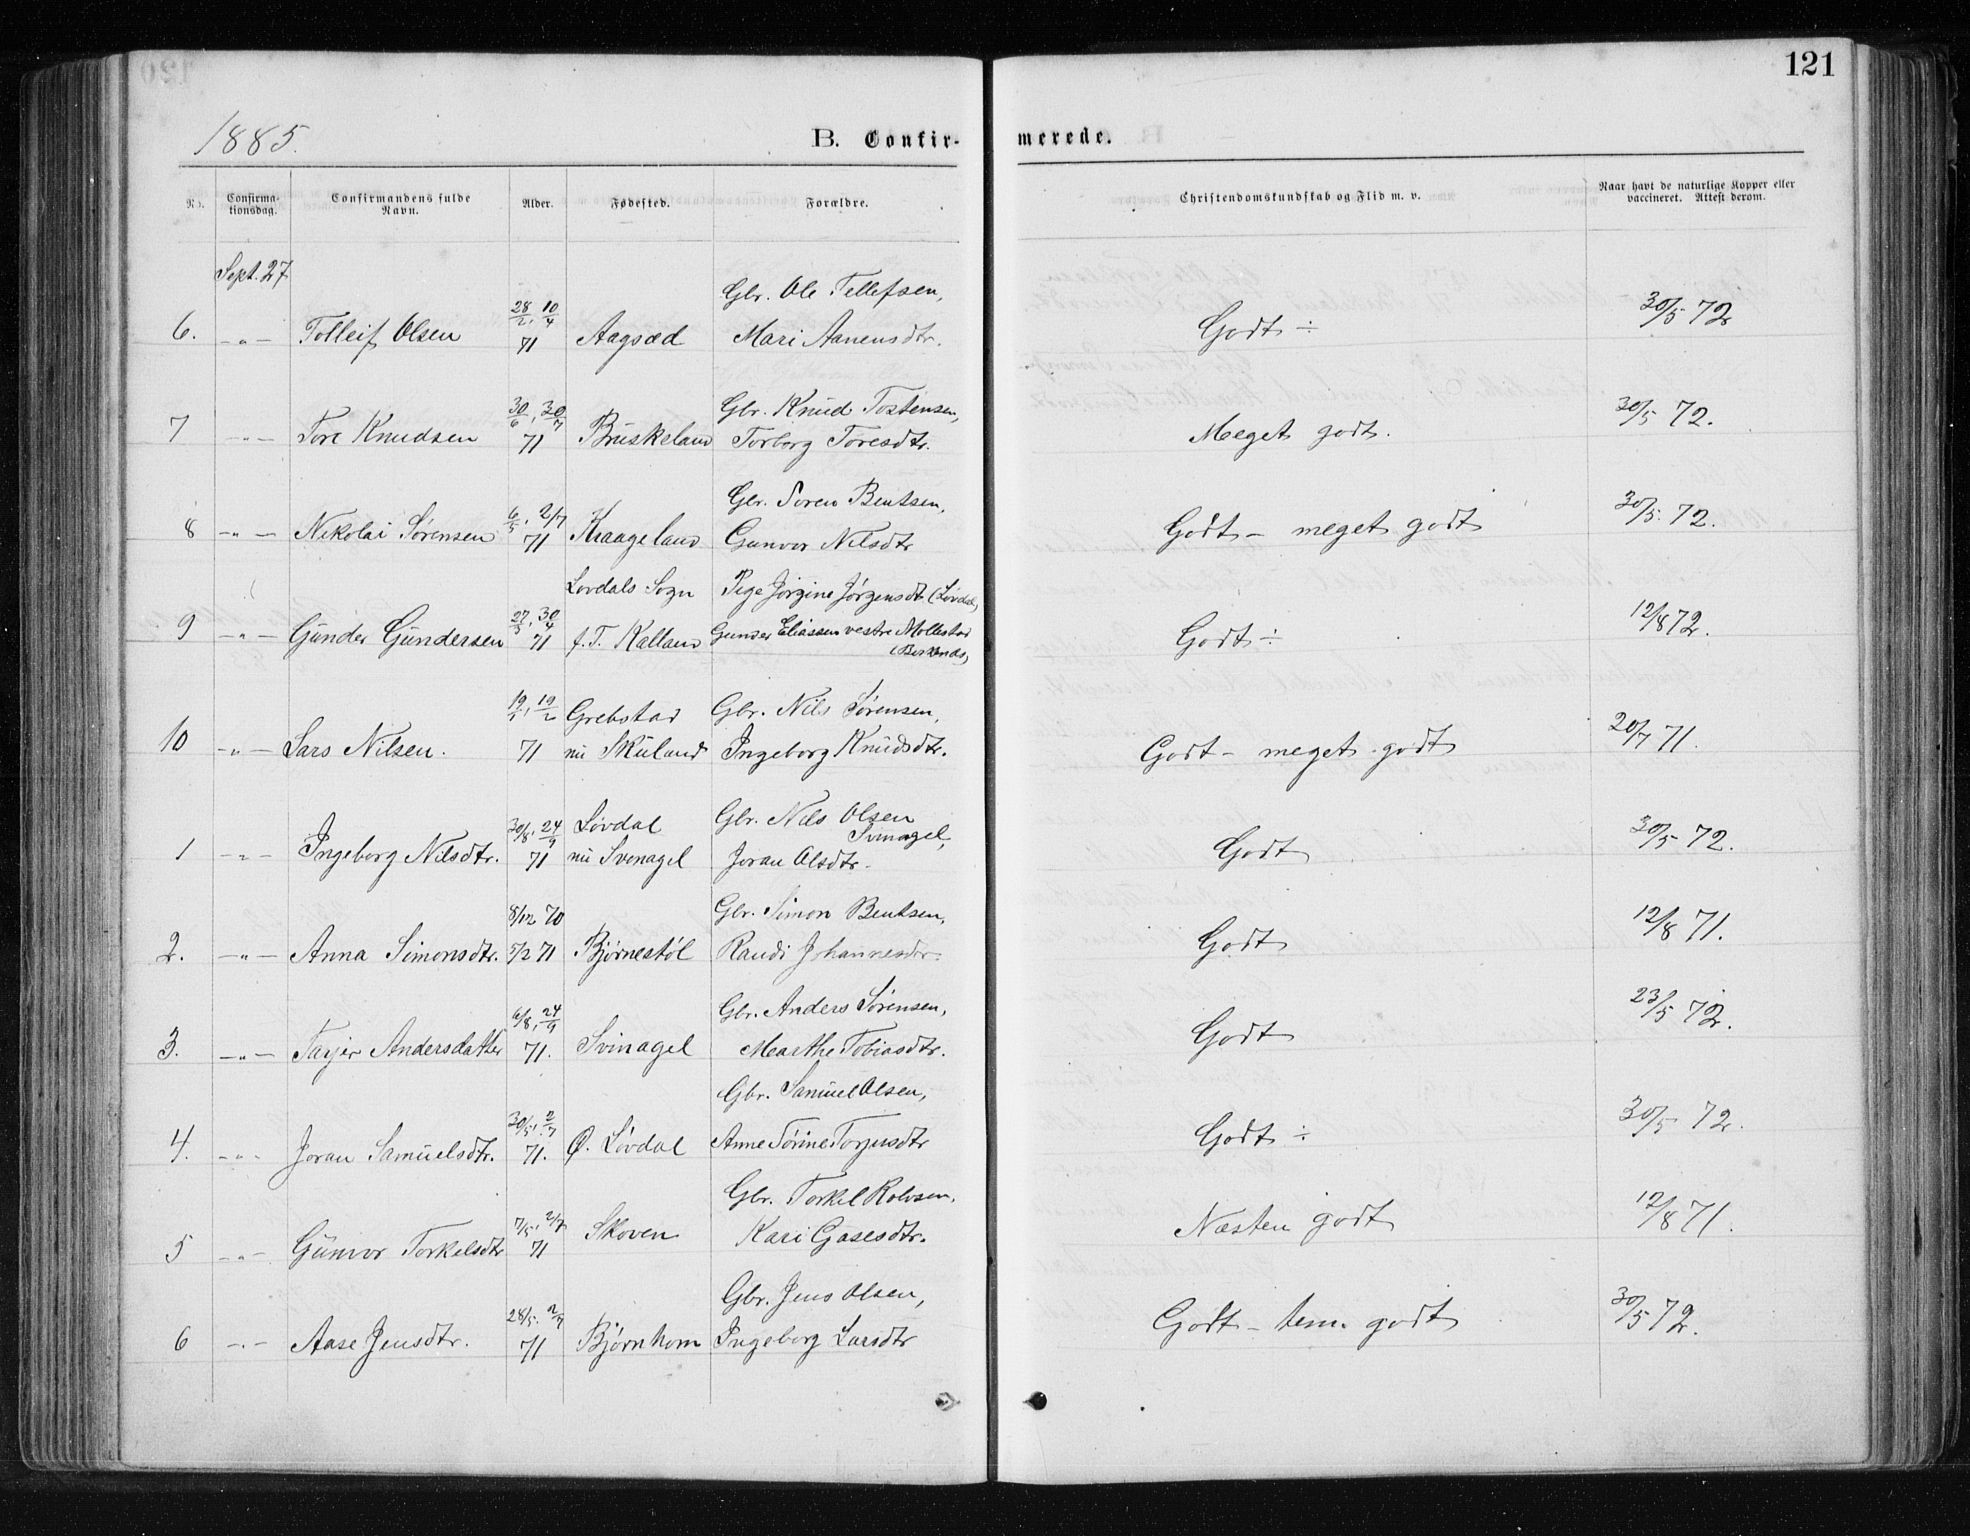 121
1885.
B. Confirmerede.
No.
Confirmationsdag.
Confirmandens fulde Navn.
Alder.
Fødested.
Forældre.
Christendomskundskab og Flid m. v.
Naar havt de naturlige Kopper eller vaccineret. Attest derom.
Sept. 27
Gbr. Ole Tellefsen,
6. -"- Tolleif Olsen 28/2, 10/4 71 Aagsæd Mari Aanensdtr. Godt ÷ 30/5 72
Gbr. Knud Tostensen,
7 -"- Tore Knudsen 30/6, 30/7 71 Bruskeland Torborg Toresdtr. Meget godt. 30/5 72.
Gbr. Soren Bentsen,
8 -"- Nikolai Sørensen 6/5, 2/7 71 Kraageland Gunvor Nilsdtr Godt - meget godt 30/5. 72.
Lovdals Sogn Pige Jörgine Jørgensdt (Løvdal)
9 -"- Gunder Gundersen 27/3, 30/4 71 f. T. Kalland Gunder Eliassen vestre Mollestad Godt ÷ 12/8 72.
10 -"- Lars Nilsen. 19/1, 19/2 71 Grebstad nu Skuland Gbr. Nils Sørensen, Ingeborg Knudsdtr. Godt - meget godt 20/7 71.
1 -"- Ingeborg Nilsdtr. 30/8, 24/9 71 Løvdal nu Svenagel Gbr. Nils Olsen Svinagel, Joran Olsdtr. Godt 30/5 72.
Gbr. Simon Bentsen,
2. -"- Anna Simonsdtr. 8/12 70 5/2 71 Bjørnestøl Randi Johannesdtr. Godt 12/8 71.
Gbr. Anders Sørensen,
3. -"- Tarjer Andersdatter 6/8, 24/9 71. Svinagel Marthe Tobiasdtr. Godt 23/5 72.
Gbr. Samuel Olsen,
4. -"- Joran Samuelsdtr. 30/5, 2/7 71. Ø. Løvdal Anne Tørine Torjusdtr Godt ÷ 30/5 72.
Gbr. Torkel Rolvsen.
5 -"- Gunvor Torkelsdtr 7/5, 2/7 71 Skoven Kari Gasesdtr. Næsten godt 12/8 71.
Gbr. Jens Olsen,
6 -"- Aase Jensdtr. 28/5. 2/7 71 Bjørnhom Ingeborg Larsdtr Godt - tem. godt 30/5 72.